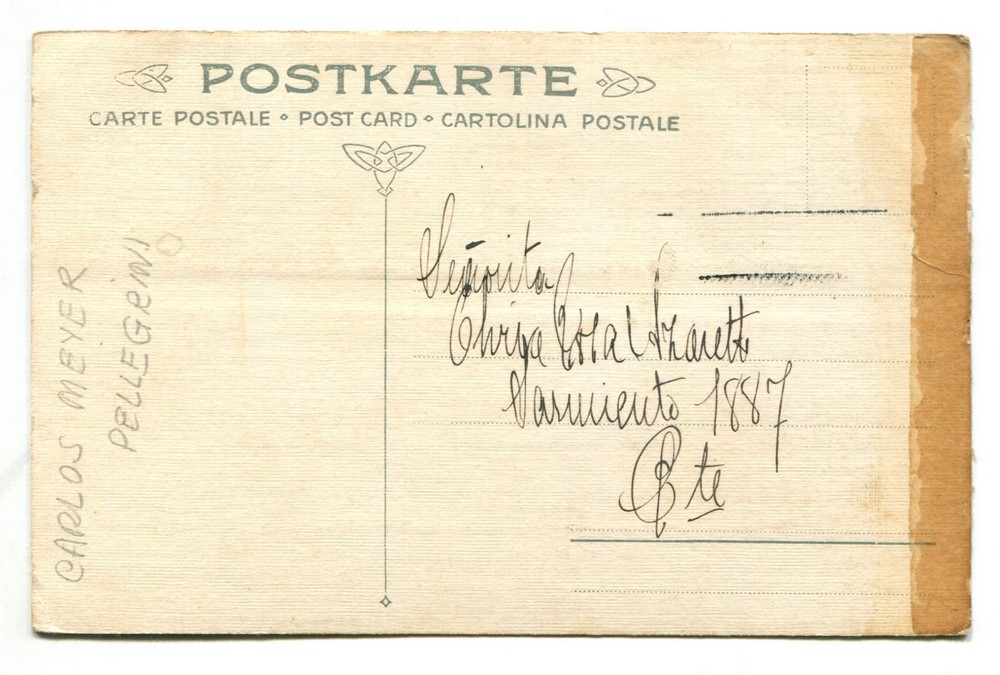 POSTKARTE
CARTE POSTALE ⋄ POST CARD ⋄ CARTOLINA POSTALE
Señorita
Sarmiento 1887
Cte
CARLOS MEYER
PELLEGRINI